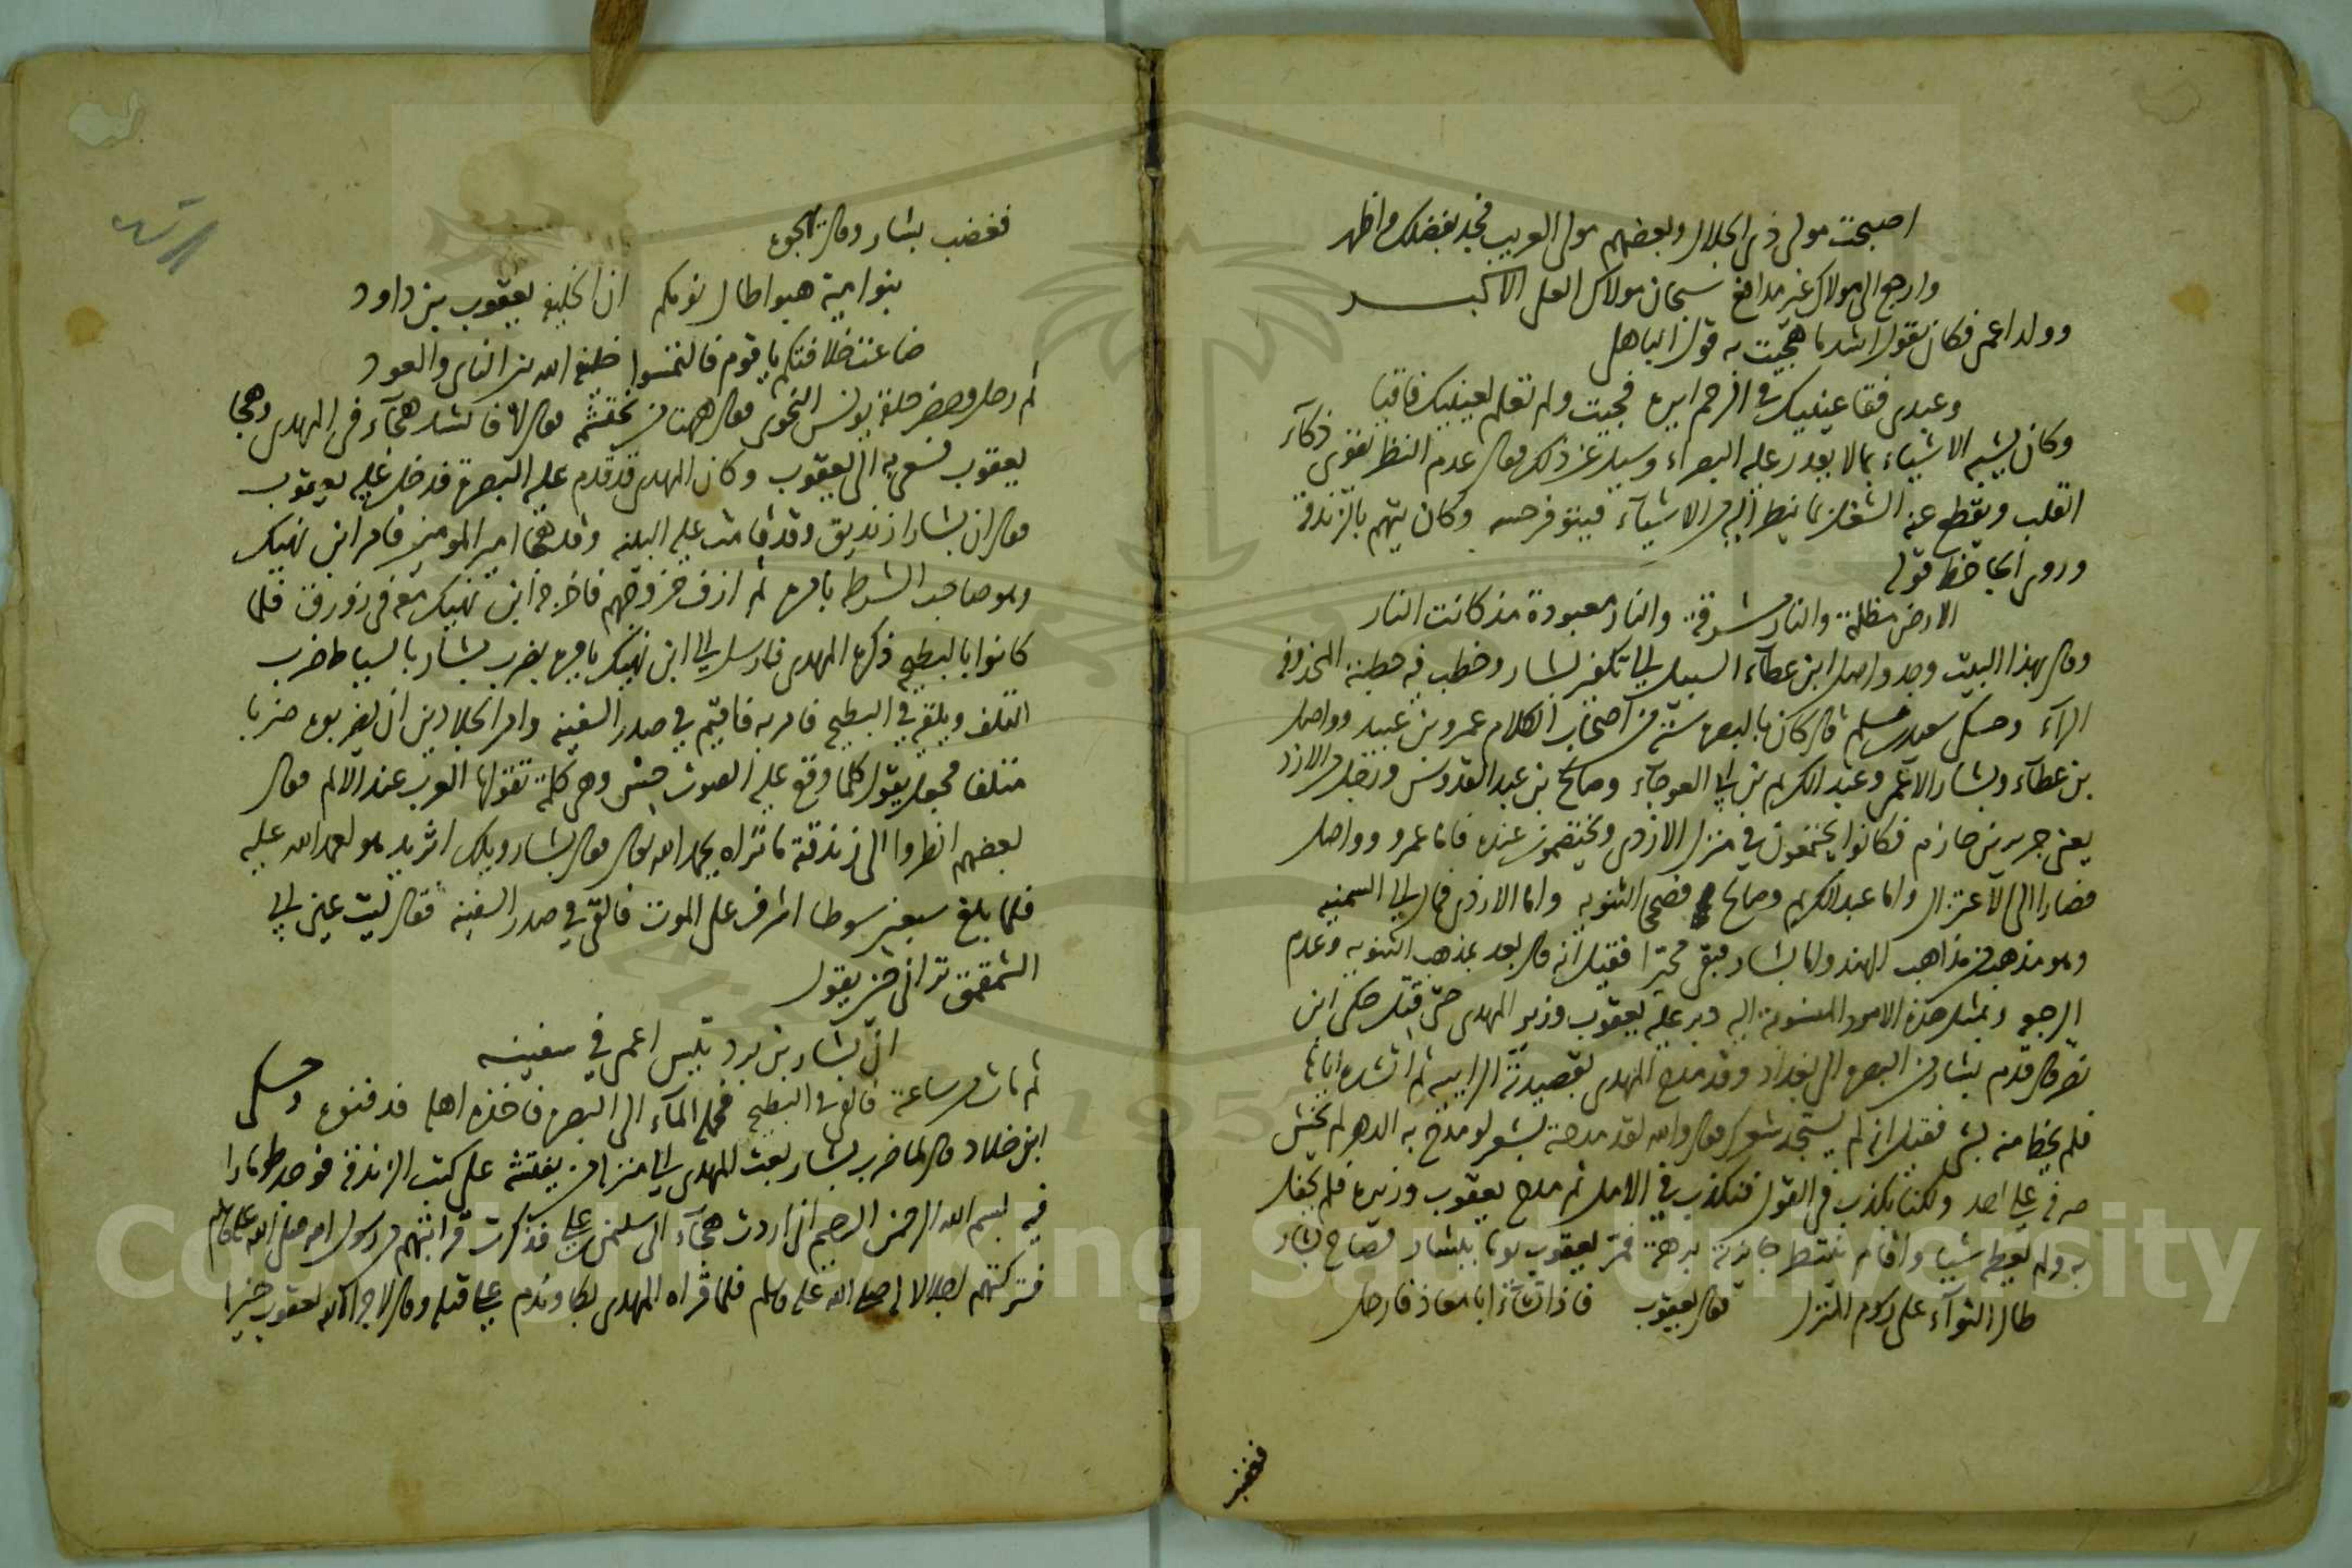 اصبحت مولى ذى الجلال وبعضهم مولى العريب فخذ بفضلك وافخر
وارجع الى مولاك غير مدافع سبحان مولاك العلى الاكبر
وولد اعمى فكان يقول اشد ما هجيت به قول الباهلى
وعبدى فقا عينيك فى الرحم ايره فجيت ولم تعلم لعينيك فاقيا
وكان يشبه الاشياء بما لا يقدر عليه البصراء وسيل عن ذلك فقال عدم النظر يقوى ذكاء
القلب ويقطع عنه الشغل بما ينظر اليه من الاشياء فيتوفر حسه وكان يتهم بالزندقة
وروى الجاحظ قوله
الارض مظلمة والنار مشرقة والنار معبودة مذ كانت النار
وقال بهذا البيت وجد واصل ابن عطاء السبيل الى تكفير بشار وخطب فيه خطبته المحذوفة
الراء وحكى سعيد بن مسلم قال كان بالبصرة ستة من اصحاب الكلام عمرو بن عبيد وواصل
بن عطاء وبشار الاعمى وعبد الكريم بن ابى العوجاء وصالح بن عبد القدوس ورجل من الازد
يعنى جرير بن حازم فكانوا يجتمعون فى منزل الازدى ويختصمون عنده فاما عمرو وواصل
فصارا الى الاعتزال واما عبد الكريم وصالح فصححا الثنوية واما الازدى فمال الى السمنيه
وهو مذهب من مذاهب الهند واما بشار فبقى متحيرا فقيل انه قال بعد بمذهب الثنويه وعدم
الرجوع وبمثل هذه الامور المنسوبة اليه دبر عليه يعقوب وزير المهدى حتى قتل حكى ابن
نصر قال قدم بشار من البصرة الى بغداد وقد مدح المهدى بقصيدته الرابيه ثم انشده اياها
فلم يحظ منه بشى فقيل انه لم يستجد شعرك فقال والله لقد مدحته بشعر لو مدح به الدهر لم يخش
صرفه على احد ولكنا نكذب فى القول فنكذب فى الامل ثم مدح يعقوب وزيره فلم يحفل
به ولم يعطه شيا واقام ينتظر جايزته برهة فمر يعقوب يوما ببشار فصاح بشار
طال الثوآء على رسوم المنزل فقال يعقوب فاذا تشاء ابا معاذ فارحل
فغضب
فغضب بشار وقال يهجوه
بنو امية هبوا طال نومكم ان الخليفة يعقوب بن داود
ضاعت خلافتكم يا قوم فالتمسوا خليفة الله بين الناى والعود
ثم رحل وحضر حلقة يونس النحوى فقال هل هنا من نحتشمه فقال لا فانشد هجاء فى المهدى وهجا
يعقوب فسعى به الى يعقوب وكان المهدى قد قدم على البصرة فدخل عليه يعقوب
فقال ان بشارا زنديق وقد قامت عليه البينه وقد هجا امير المومنين فامر ابن نهيك
وهو صاحب الشرط بامره ثم ازف خروجهم فاخرجه ابن نهيك معه فى زورق فلما
كانوا بالبطيحه ذكره المهدى فارسل الى ابن نهيك يامره بضرب بشار بالسياط ضرب
التلف ويلقيه فى البطيحه فامر به فاقيم فى صدر السفينه وامر الجلادين ان يضربوه ضربا
متلفا فجعل يقول كلما وقع عليه الصوت حس وهى كلمة تقولها العرب عند الالم فقال
بعضهم انظروا الى زندقته ما تراه يحمد الله تعالى فقال بشار ويلك اثريد هو احمد الله عليه
فلما بلغ سبعين سوطا اشرف على الموت فالقى فى صدر السفينه فقال ليت عين ابى
الشمقمق ترانى حين يقول
ان بشار بن برد تيس اعمى فى سفينه
ثم مات من ساعته فالقى فى البطيحه فحمله الماء الى البصرة فاخذه اهله فدفنوه وحكى
ابن خلاد قال لما ضرب بشار بعث المهدى الى منزله من يفتشه على كتب الزندقه فوجد طومارا
فيه بسم الله الرحمن الرحيم انى اردت هجاء ال سليمن بن على فذكرت قرابتهم من رسول الله صلى الله عليه وسلم
فتركتهم اجلالا له صلى الله عليه وسلم فلما قراه المهدى بكى وندم على قتله وقال لا جزا الله يعقوب خيرا